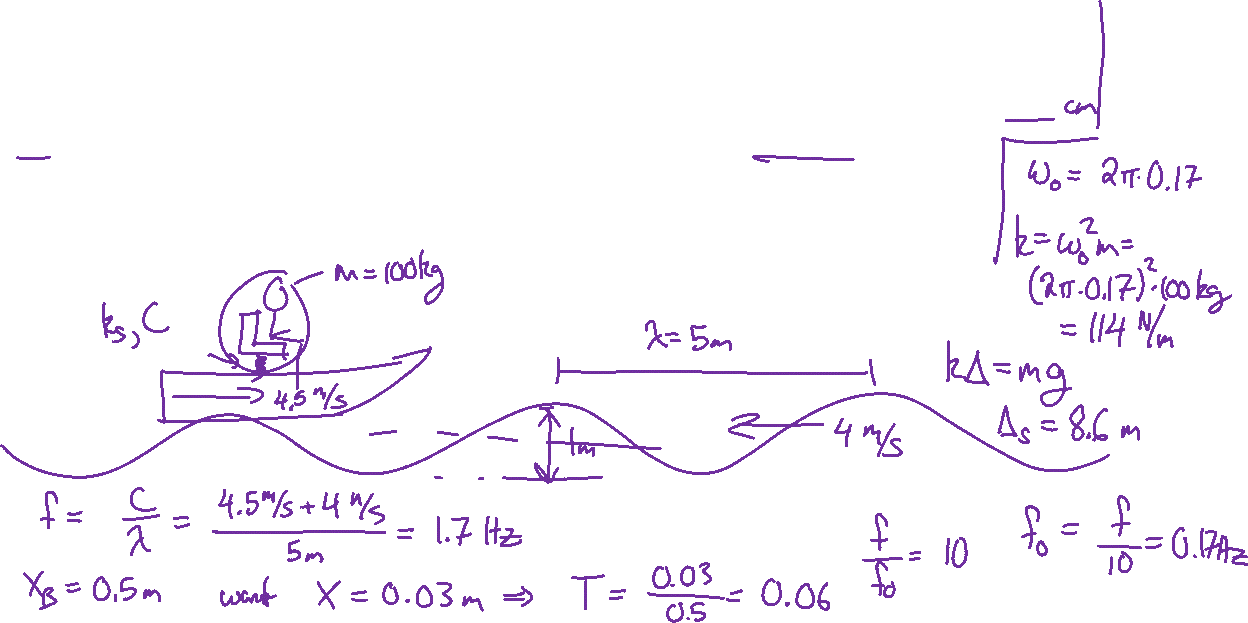 cm
ω₀ = 2π·0.17
k = ω₀²m =
(2π·0.17)²·100kg
= 114 N/m
m = 100kg
kₛ, C
λ = 5m
kΔ = mg
4.5 m/s
1m
4 m/s
Δₛ = 8.6 m
f = C/λ = (4.5 m/s + 4 m/s)/5m = 1.7 Hz
f/f₀ = 10
f₀ = f/10 = 0.17Hz
X_B = 0.5m want X = 0.03m ⇒ T = 0.03/0.5 = 0.06